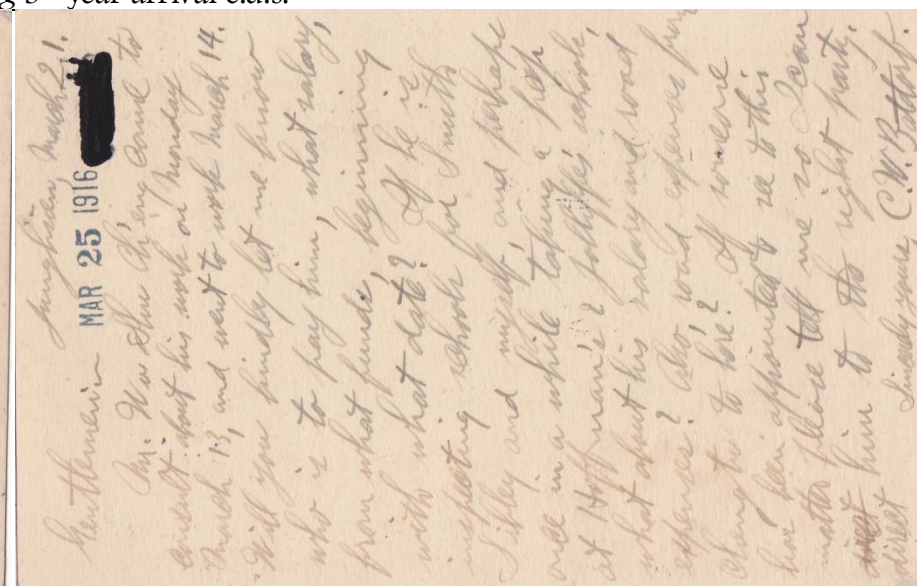 g 3 year arrival c.d.s.
Junghsien, March 21.
MAR 25 1916
Gentlemen
Mr. Wu Shu Ch'eng came to
consult about his work on Monday
March 13, and went to work March 14.
Will you kindly let me know
who is to pay him, what salary,
from what funds, beginning
with what date? If he is
inspecting schools for Smith
Sibley and myself, and perhaps
once in a while taking a peep
at Hoffman's & Foltz's schools,
what about his salary and road
expenses? Also road expenses from
Chungtu to here? If someone
has been appointed to see to this
matter please tell me so I can
direct him to the right party.
direct Sincerely yours C.W. Batdorf.